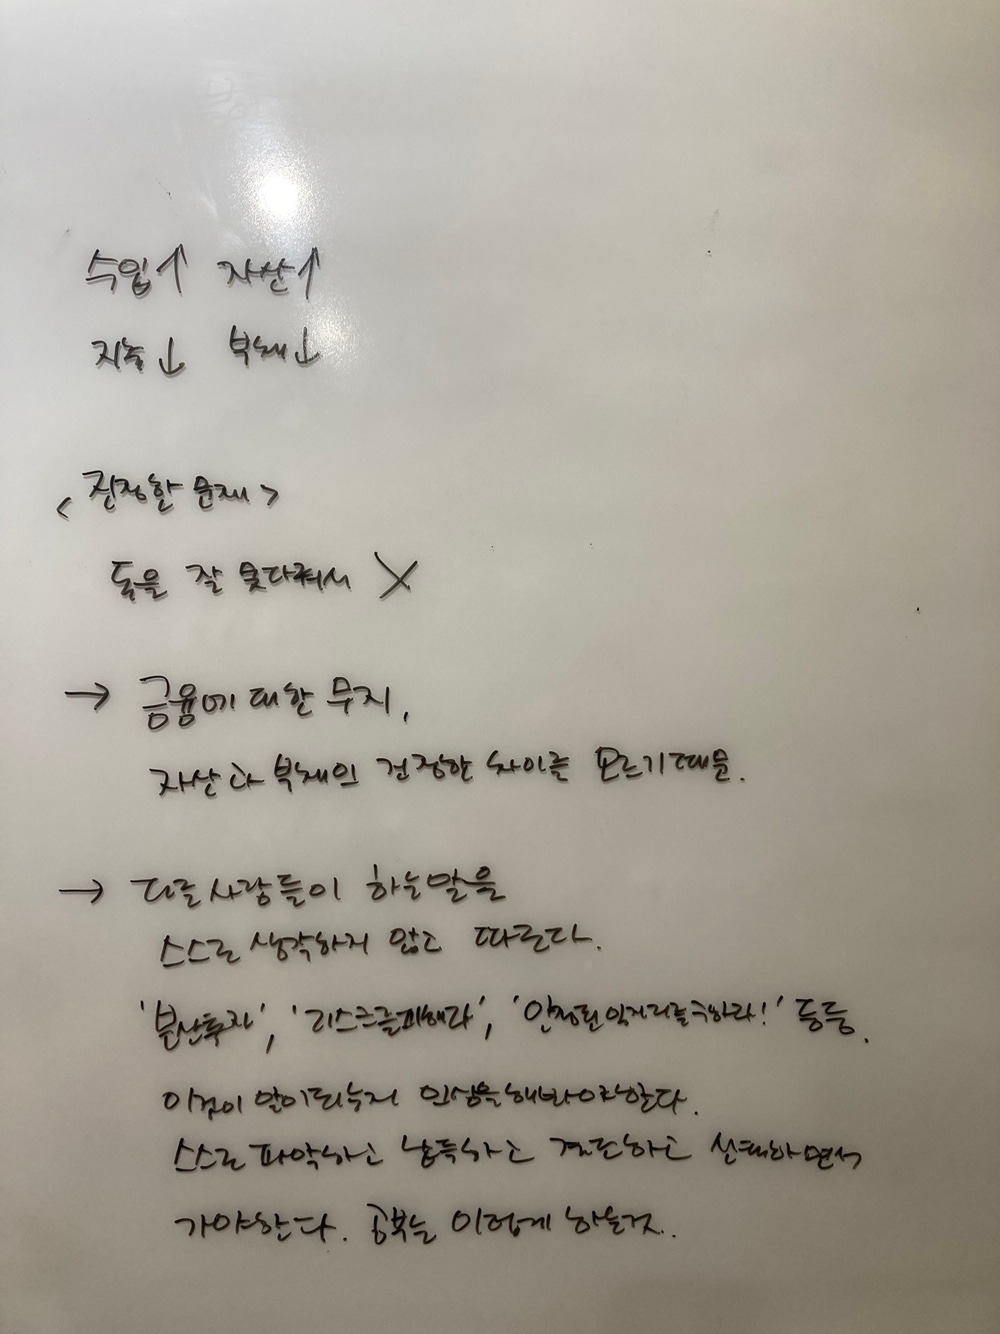 수입↑ 자산↑
지출↓ 부채↓
<진정한 문제>
돈을 잘 못다뤄서 X
→ 금융에 대한 무지,
자산과 부채의 진정한 차이를 모르기때문.
→ 다른사람들이 하는말을
스스로 생각하지 않고 따른다.
'분산투자', '리스크를피해라', '안정된 일자리를구하라!' 등등.
이것이 말이되는지 의심을해봐야한다.
스스로 파악하고 납득하고 결단하고 선택하면서
가야한다. 공부는 이렇게 하는것.